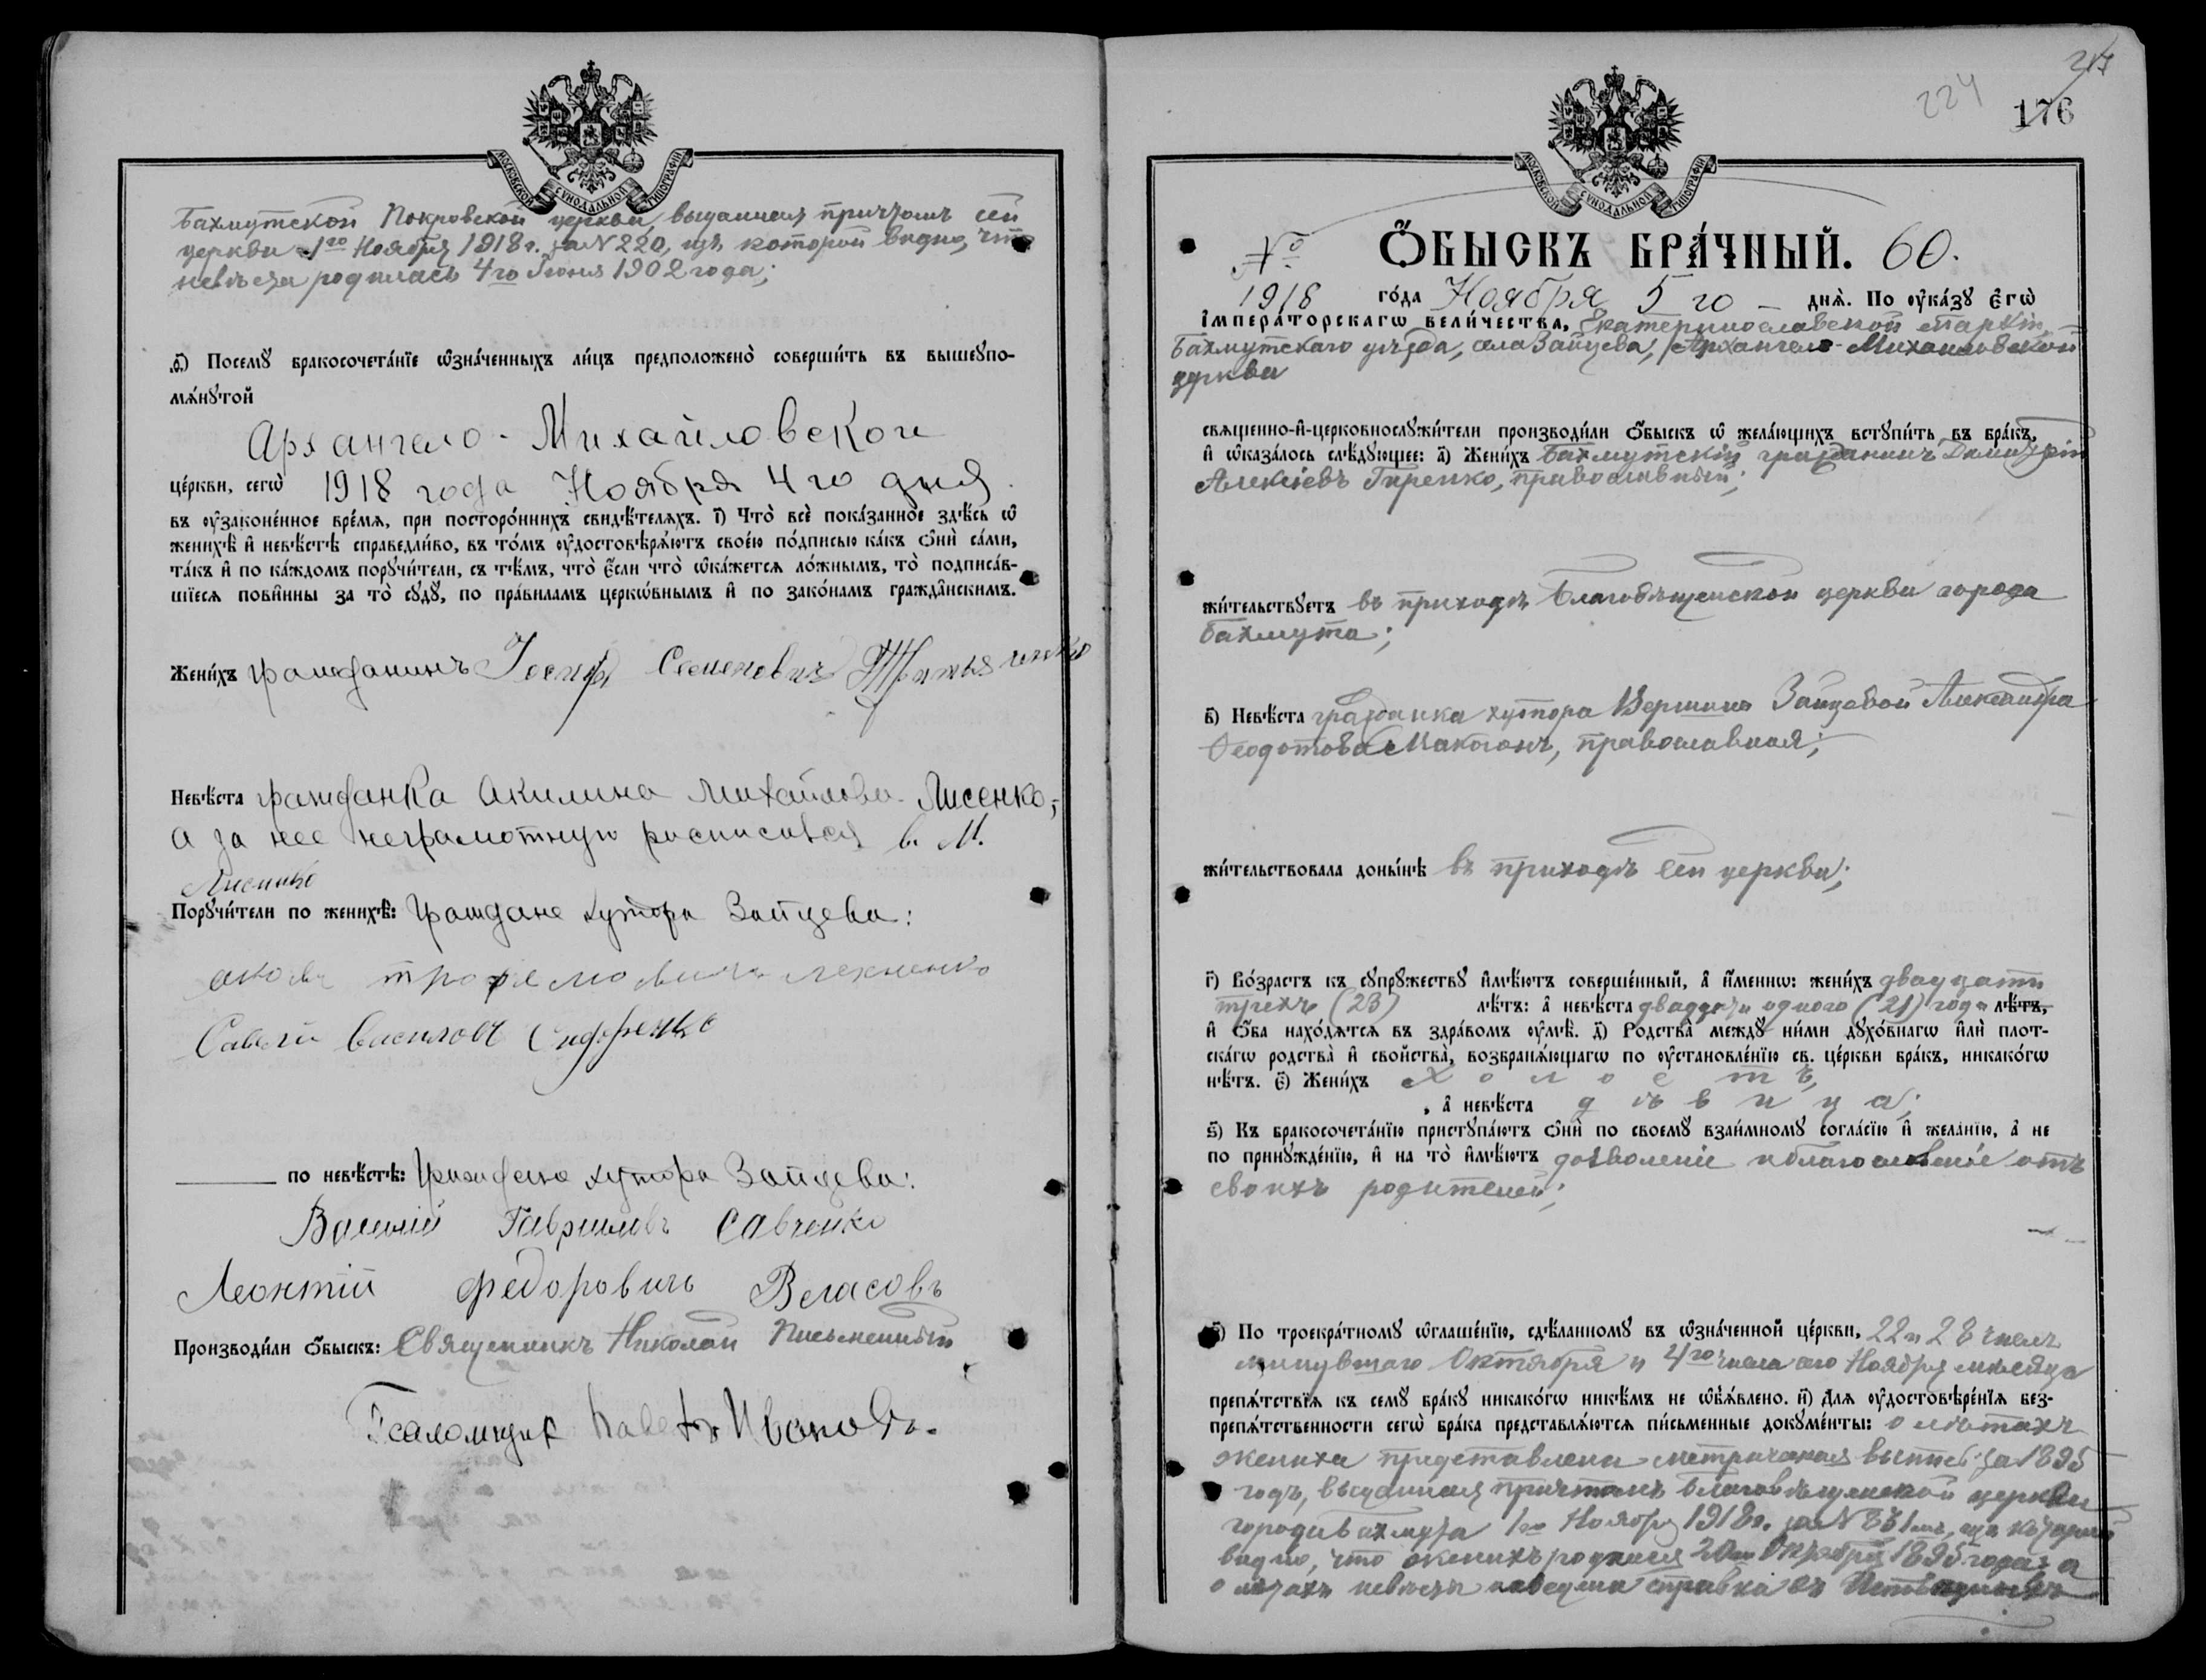 МОСКОВСКОЙ СѴНОДАЛЬНОЙ ТИПОГРАФІИ
Бахмутской Покровской церкви, выданная причтомъ сей
церкви 1го Ноября 1918 г. за № 220, изъ которой видно, что
невѣста родилась 4го Іюня 1902 года;
ѳ҃) Посемꙋ бракосочета́нїе ѡ҆зна́ченныхъ ли́цъ предположено̀ соверши́ть въ вышеꙋпо-
мѧ́нꙋтой
Архангело-Михайловской
це́ркви, сегѡ̀ 1918 года Ноября 4го дня
въ ᲂу҆законе́нное вре́мѧ, при посторо́ннихъ свидѣ́телѧхъ. і҃) Что̀ всѐ пока́занное здѣ́сь ѡ҆
женихѣ̀ и҆ невѣ́стѣ справедли́во, въ то́мъ ᲂу҆достовѣрѧ́ютъ свое́ю по́дписью ка́къ ѻ҆нѝ са́ми,
та́къ и҆ по ка́ждомъ порꙋчи́тели, съ тѣ́мъ, что̀ є҆́сли что̀ ѡ҆ка́жетсѧ ло́жнымъ, то̀ подписа́в-
шїесѧ пови́нны за то̀ сꙋдꙋ̀, по пра́виламъ церко́внымъ и҆ по зако́намъ гражда́нскимъ.
Жени́хъ гражданинъ Іосифъ Семеновичъ
Невѣ́ста гражданка Акилина Михайлова Лисенко,
а за нее неграмотную росписался В. М.
Лисенко
Порꙋчи́тели по женихѣ̀: Граждане хутора Зайцева:
Савелій Василовъ
по невѣ́стѣ: Граждане хутора Зайцева:
Василій Гавриловъ Савченко
Леонтій Федоровичъ Власовъ
Производи́ли ѻ҆́быскъ: Священникъ Николай Письменный
Псаломщик Павелъ Ивановъ.
217
224
176
МОСКОВСКОЙ СѴНОДАЛЬНОЙ ТИПОГРАФІИ
№ ѺБЫСКЪ БРА́ЧНЫЙ. 60.
1918 го́да Ноября 5го днѧ̀. По ᲂу҆ка́зꙋ є҆гѡ̀
і҆мпера́торскагѡ вели́чества, Екатеринославской епархіи,
Бахмутскаго уѣзда, села Зайцева, Архангело-Михайловской
церкви
свѧщенно-и҆-церковнослꙋжи́тели производи́ли ѻ҆́быскъ ѡ҆ жела́ющихъ встꙋпи́ть въ бра́къ,
и҆ ѡ҆каза́лось слѣ́дꙋющее: а҃) Жени́хъ Бахмутскій гражданинъ Димитрій
Алексѣевъ Гиренко, православный;
жи́тельствꙋетъ въ приходѣ Благовѣщенской церкви города
Бахмута;
в҃) Невѣ́ста гражданка хутора Вершино Зайцевой Александра
Ѳеодотова Макогонъ, православная;
жи́тельствовала доны́нѣ въ приходѣ сей церкви;
г҃) Во́зрастъ къ сꙋпрꙋ́жествꙋ и҆мѣ́ютъ соверше́нный, а҆ и҆́меннѡ: жени́хъ двадцати
трехъ (23) лѣ́тъ: а҆ невѣ́ста двадцати одного (21) года лѣ́тъ,
и҆ ѻ҆́ба нахо́дѧтсѧ въ здра́вомъ ᲂу҆мѣ̀. д҃) Родства̀ междꙋ ни́ми дꙋхо́внагѡ и҆лѝ плот-
ска́гѡ родства̀ и҆ свойства̀, возбранѧ́ющагѡ по ᲂу҆становле́нїю св. це́ркви бра́къ, никако́гѡ
нѣ́тъ. є҃) Жени́хъ холостъ,
, а҆ невѣ́ста дѣвица;
ѕ҃) Къ бракосочета́нїю пристꙋпа́ютъ ѻ҆нѝ по своемꙋ̀ взаи́мномꙋ согла́сїю и҆ жела́нїю, а҆ не
по принꙋжде́нїю, и҆ на то̀ и҆мѣ́ютъ дозволеніе и благословеніе отъ
своихъ родителей;
з҃) По троекра́тномꙋ ѡ҆глаше́нїю, сдѣ́ланномꙋ въ ѡ҆зна́ченной це́ркви, 22 и 28 чиселъ
минувшаго Октября и 4го числа сего Ноября мѣсяца
препѧ́тствїѧ къ семꙋ̀ бра́кꙋ никако́гѡ никѣ́мъ не ѡ҆б̾ѧ́влено. и҃) Длѧ ᲂу҆достовѣре́нїѧ без-
препѧ́тственности сегѡ̀ бра́ка представлѧ́ютсѧ пи́сьменные докꙋме́нты: о лѣтахъ
жениха представлена метрическая выпись за 1895
годъ, выданная причтомъ Благовѣщенской церкви
города Бахмута 1го Ноября 1918 г. за № изъ которой
видно, что женихъ родился 20го Октября 1895 года; а
о лѣтахъ невѣсты наведена справка въ